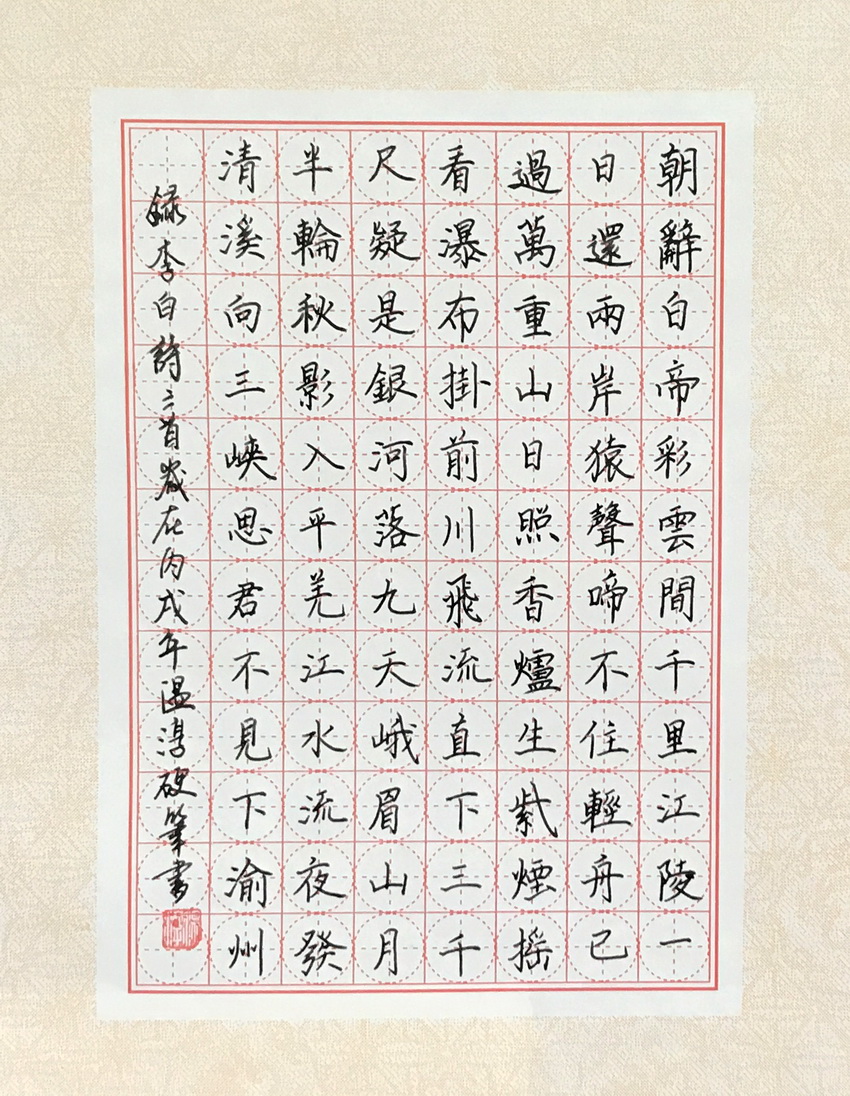 朝辭白帝彩雲間千里江陵一
日還兩岸猿聲啼不住輕舟已
過萬重山日照香爐生紫煙摇
看瀑布掛前川飛流直下三千
尺疑是銀河落九天峨眉山月
半輪秋影入平羌江水流夜發
清溪向三峽思君不見下渝州
録李白詩三首歲在丙戌年温淳硬筆書